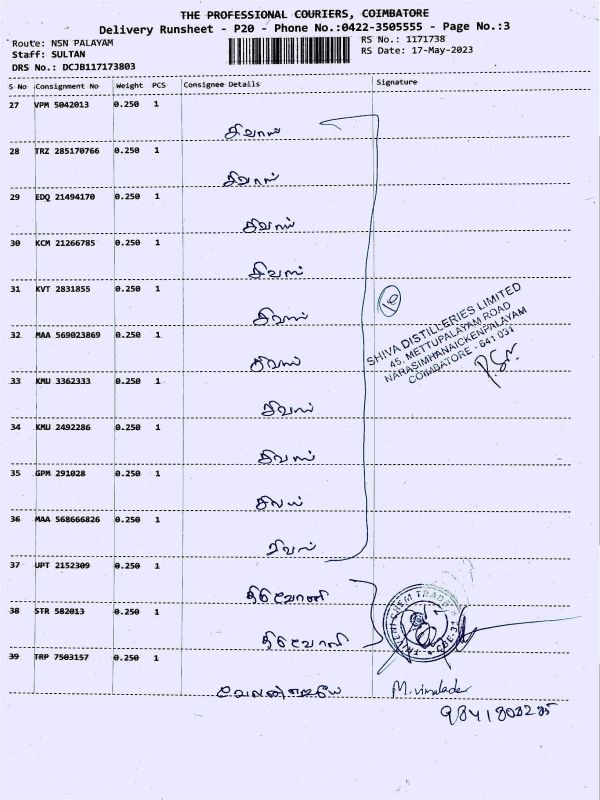 THE PROFESSIONAL COURIERS, COIMBATORE
Delivery Runsheet - P20 - Phone No.:0422-3505555 - Page No.:3
Route: NSN PALAYAM
RS No.: 1171738
Staff: SULTAN
RS Date: 17-May-2023
DRS No.: DCJB117173803
S No Consignment No Weight PCS Consignee Details Signature
27 VPM 5042013 0.250 1
சிவாஸ்
28 TRZ 285170766 0.250 1
சிவாஸ்
29 EDQ 21494170 0.250 1
சிவாஸ்
30 KCM 21266785 0.250 1
சிவாஸ்
31 KVT 2831855 0.250 1
சிவாஸ்
10
SHIVA DISTILLERIES LIMITED
45, METTUPALAYAM ROAD
NARASIMHANAICKENPALAYAM
COIMBATORE - 641 031
32 MAA 569023869 0.250 1
சிவாஸ்
33 KMU 3362333 0.250 1
சிவாஸ்
34 KMU 2492286 0.250 1
சிவாஸ்
35 GPM 291028 0.250 1
36 MAA 568666826 0.250 1
37 UPT 2152309 0.250 1
திரிவேணி
38 STR 582013 0.250 1
திரிவேணி
TRIVENI CHEM TRADE
CBE-31
39 TRP 7503157 0.250 1
M. vimalader